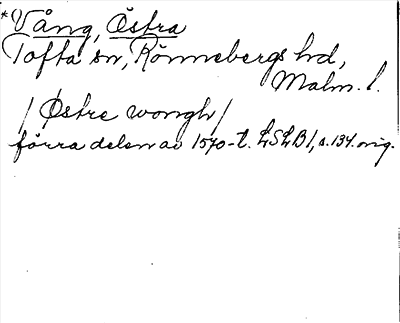 *Vång, Östra
Tofta sn, Rönnebergs hd,
Malm. l.
/Östre wongh/
förra delen av 1570-t. LSLB1, s. 134. orig.